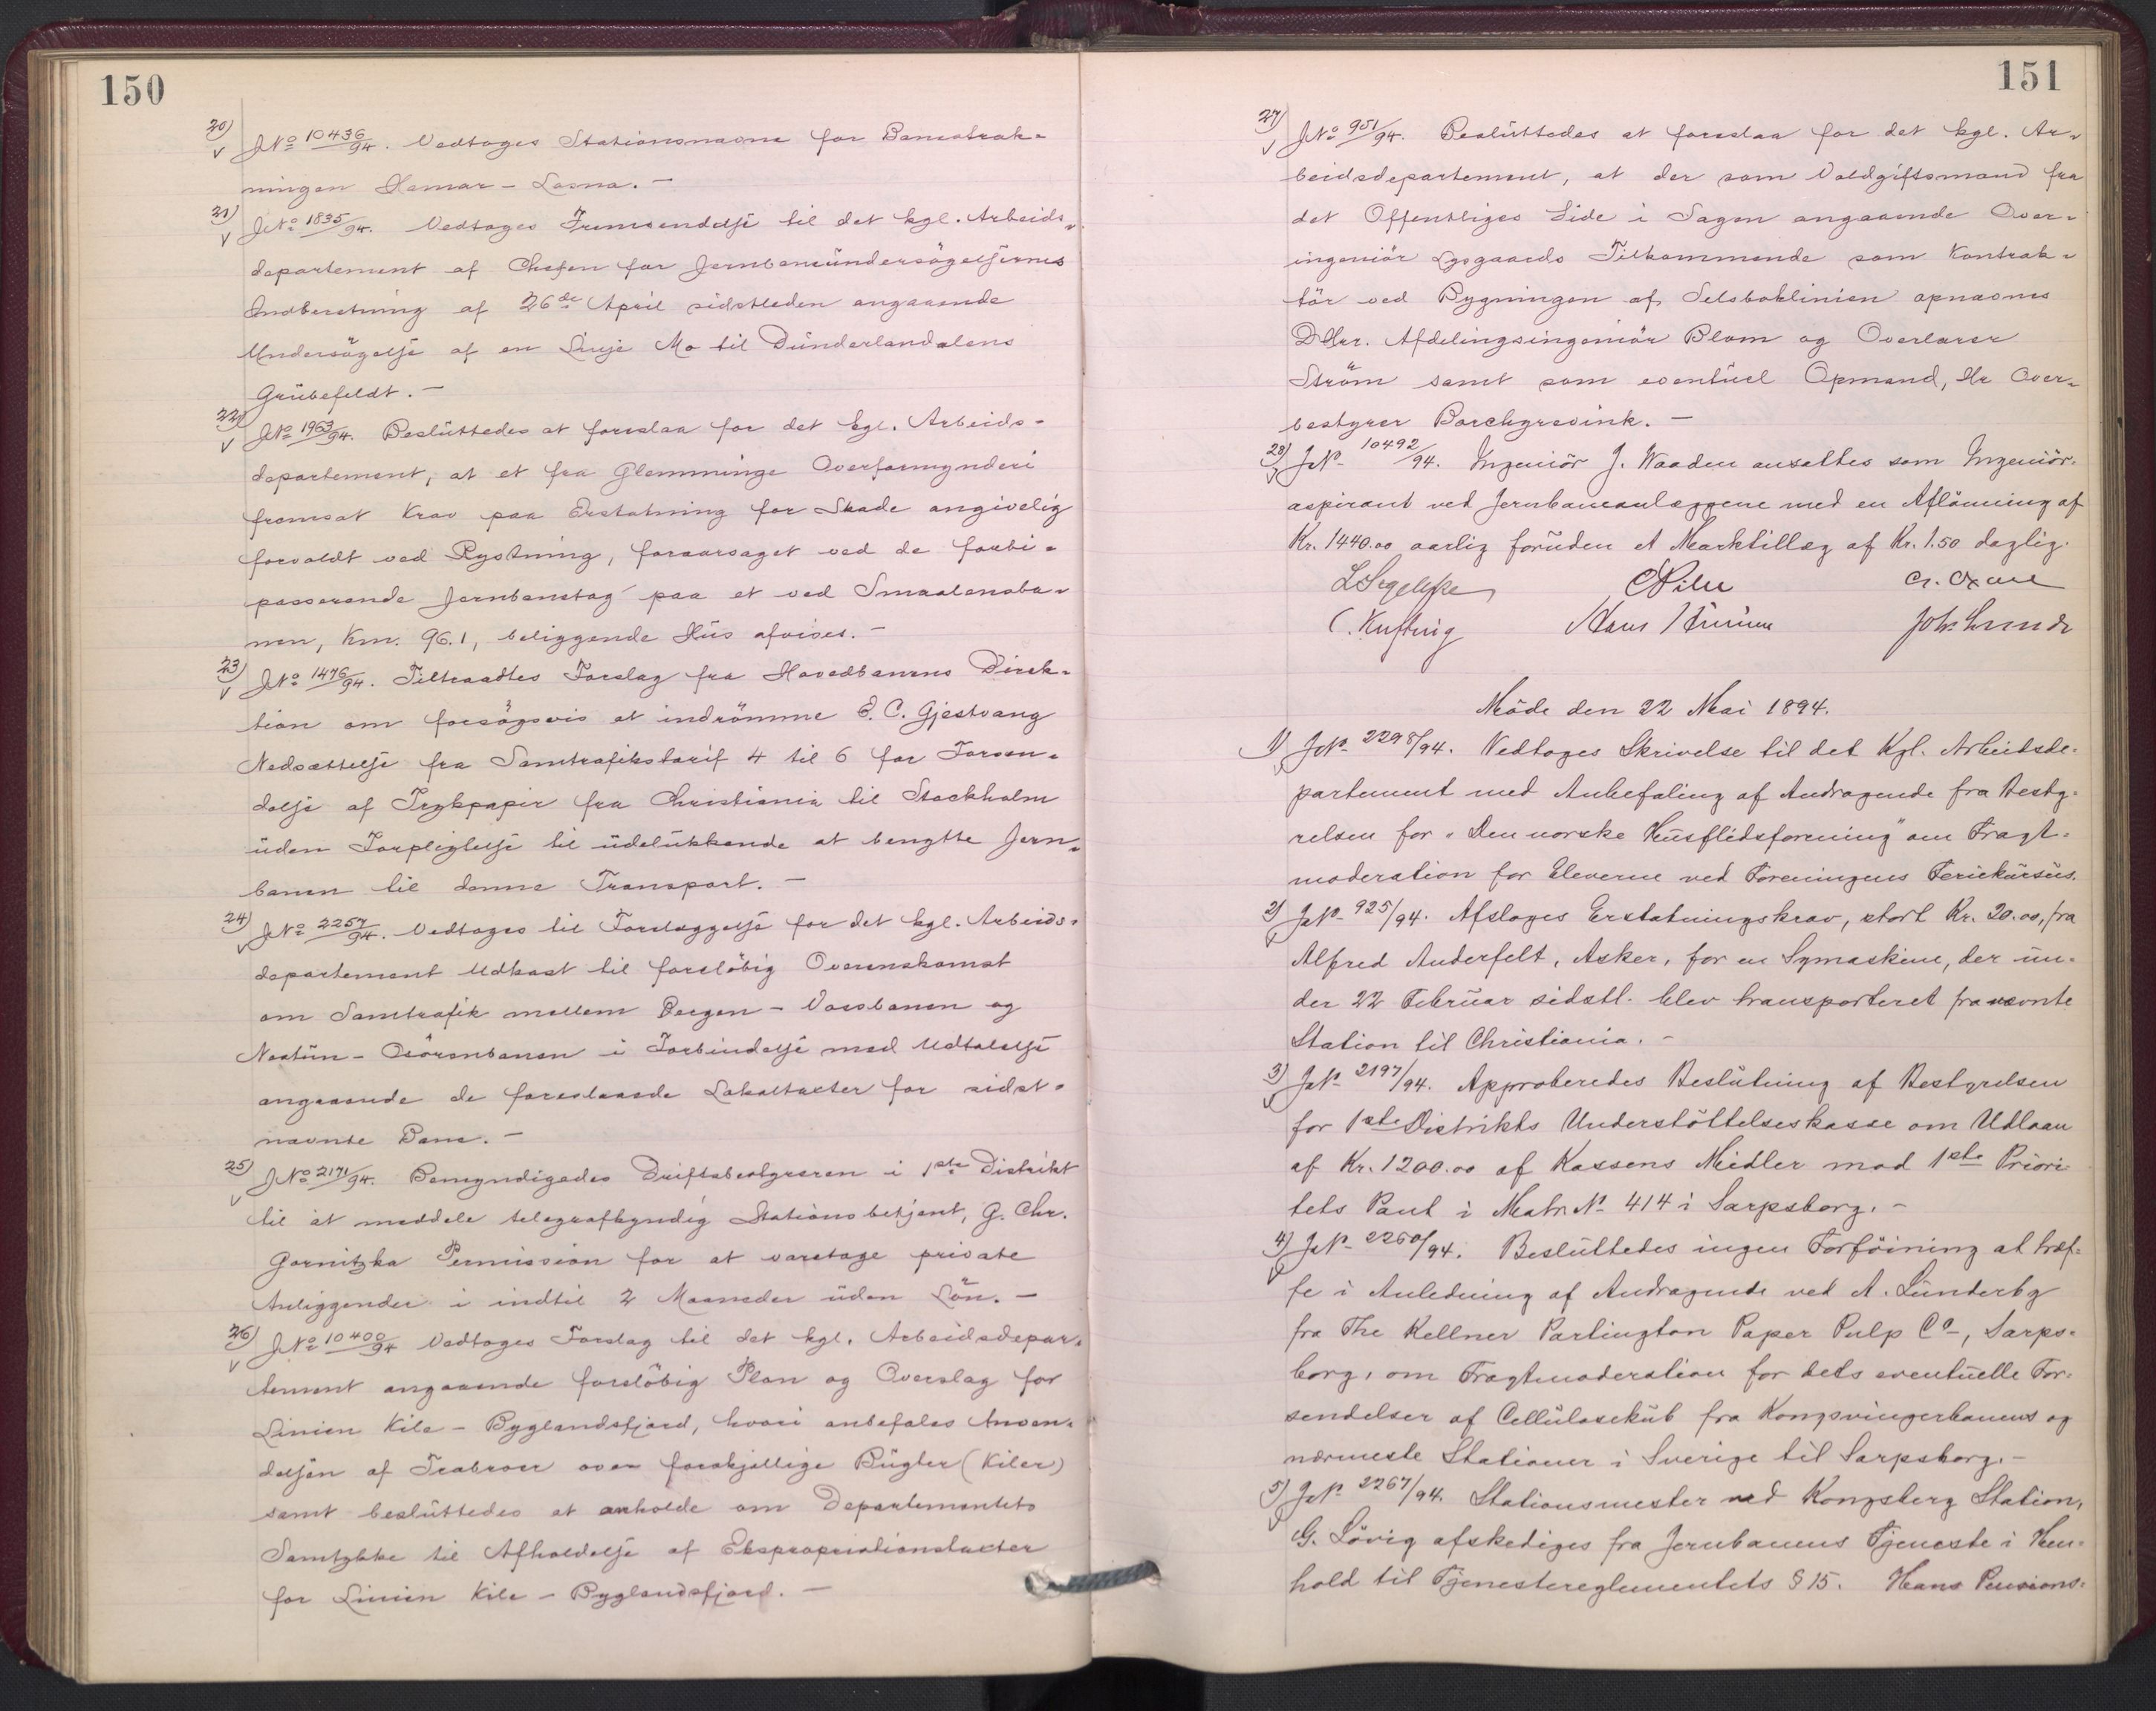 150
20) JNo 10436/94. Vedtoges Stationsnavne for Banestræk-
ningen Hamar - Løsna. -
21) JNo 1835/94. Vedtoges Fremsendelse til det kgl. Arbeids-
departement af Chefen for Jernbaneundersögelsernes
Indberetning af 26de April sidstleden angaaende
Undersögelse af en Linje Mo til Dunderlandalens
Grubefeldt. -
22) JNo 1963/94. Besluttedes at foreslaa for det kgl. Arbeids-
departement, at et fra Glemminge Overformynderi
fremsat Krav paa Erstatning for Skade angivelig
forvoldt ved Rystning, foraarsaget ved de forbi-
passerende Jernbanetog paa et ved Smaalensba-
nen, Km. 96.1, beliggende Hus afvises. -
23) JNo 1476/94. Tiltraadtes Forslag fra Hovedbanens Direk-
tion om forsögsvis at indrömme E. C. Gjestvang
Nedsættelse fra Samtrafikstarif 4 til 6 for Forsen-
delse af Trykpapir fra Christiania til Stockholm
uden Forpligtelse til udelukkende at benytte Jern-
banen til denne Transport. -
24) JNo 2257/94. Vedtoges til Forelæggelse for det kgl. Arbeids-
departement Udkast til foreløbig Overenskomst
om Samtrafik mellem Bergen - Vossbanen og
Nestun - Osörenbanen i Forbindelse med Udtalelse
angaaende de foreslaaede Lokaltakster for sidst-
nævnte Bane. -
25) JNo 2171/94. Bemyndigedes Driftsbestyreren i 1ste Distrikt
til at meddele telegrafkyndig Stationsbetjent, G. Chr.
Gornitzka Permission for at varetage private
Anliggender i indtil 2 Maaneder uden Lön. -
26) JNo 10400/94 Vedtoges Forslag til det kgl. Arbeidsdepar-
tement angaaende foreløbig Plan og Overslag for
Linien Kile - Byglandsfjord, hvori anbefales Anven-
delsen af Træbroer over forskjellige Bugter (Kiler)
samt besluttedes at anholde om Departementets
Samtykke til Afholdelse af Ekspropriationstakster
for Linien Kile - Byglandsfjord. -
151
27) JNo 951/94. Besluttedes at foreslaa for det kgl. Ar-
beidsdepartement, at der som Voldgiftsmænd fra
det Offentliges Side i Sagen angaaende Over-
ingeniör Lysgaards Tilkommende som Kontrak-
tör ved Bygningen af Selsbaklinien opnævnes
DHrr. Afdelingsingeniör Blom og Overlærer
Ström samt som eventuel Opmand, Hr Over-
bestyrer Borchgrevink. -
28) JNo 10492/94. Ingeniör J. Waaden ansattes som Ingeniör-
aspirant ved Jernbaneanlæggene med en Aflönning af
Kr. 1440.00 aarlig foruden et Marktillæg af Kr. 1.50 daglig.
LSegelcke CPihl
Joh. Lunde
Möde den 22 Mai 1894.
1) JNo 2298/94. Vedtoges Skrivelse til det Kgl. Arbeidsde-
partement med Anbefaling af Andragende fra Besty-
relsen for "Den norske Husflidsforening" om Fragt-
moderation for Eleverne ved Foreningens Feriekursus.
2) JNo 925/94. Afsloges Erstatningskrav, stort Kr. 20.00, fra
Alfred Anderfelt, Asker, for en Symaskine, der un-
der 22 Februar sidstl. blev transporteret fra nævnte
Station til Christiania. -
3) JNo 2197/94. Approberedes Beslutning af Bestyrelsen
for 1ste Distrikts Understöttelseskasse om Udlaan
af Kr. 1200.00 af Kassens Midler mod 1ste Priori-
tets Pant i Matr. No 414 i Sarpsborg. -
4) JNo 2260/94. Besluttedes ingen Forföining at træf-
fe i Anledning af Andragende ved A. Sünderby
fra The Kellner Partington Paper Pulp Co, Sarps-
borg, om Fragtmoderation for dets eventuelle For-
sendelser af Cellulosekub fra Kongsvingerbanens og
nærmeste Stationer i Sverige til Sarpsborg. -
5) JNo 2267/94. Stationsmester ved Kongsberg Station,
G. Lövig afskediges fra Jernbanens Tjeneste i Hen-
hold til Tjenestereglementets § 15. Hans Pensions-